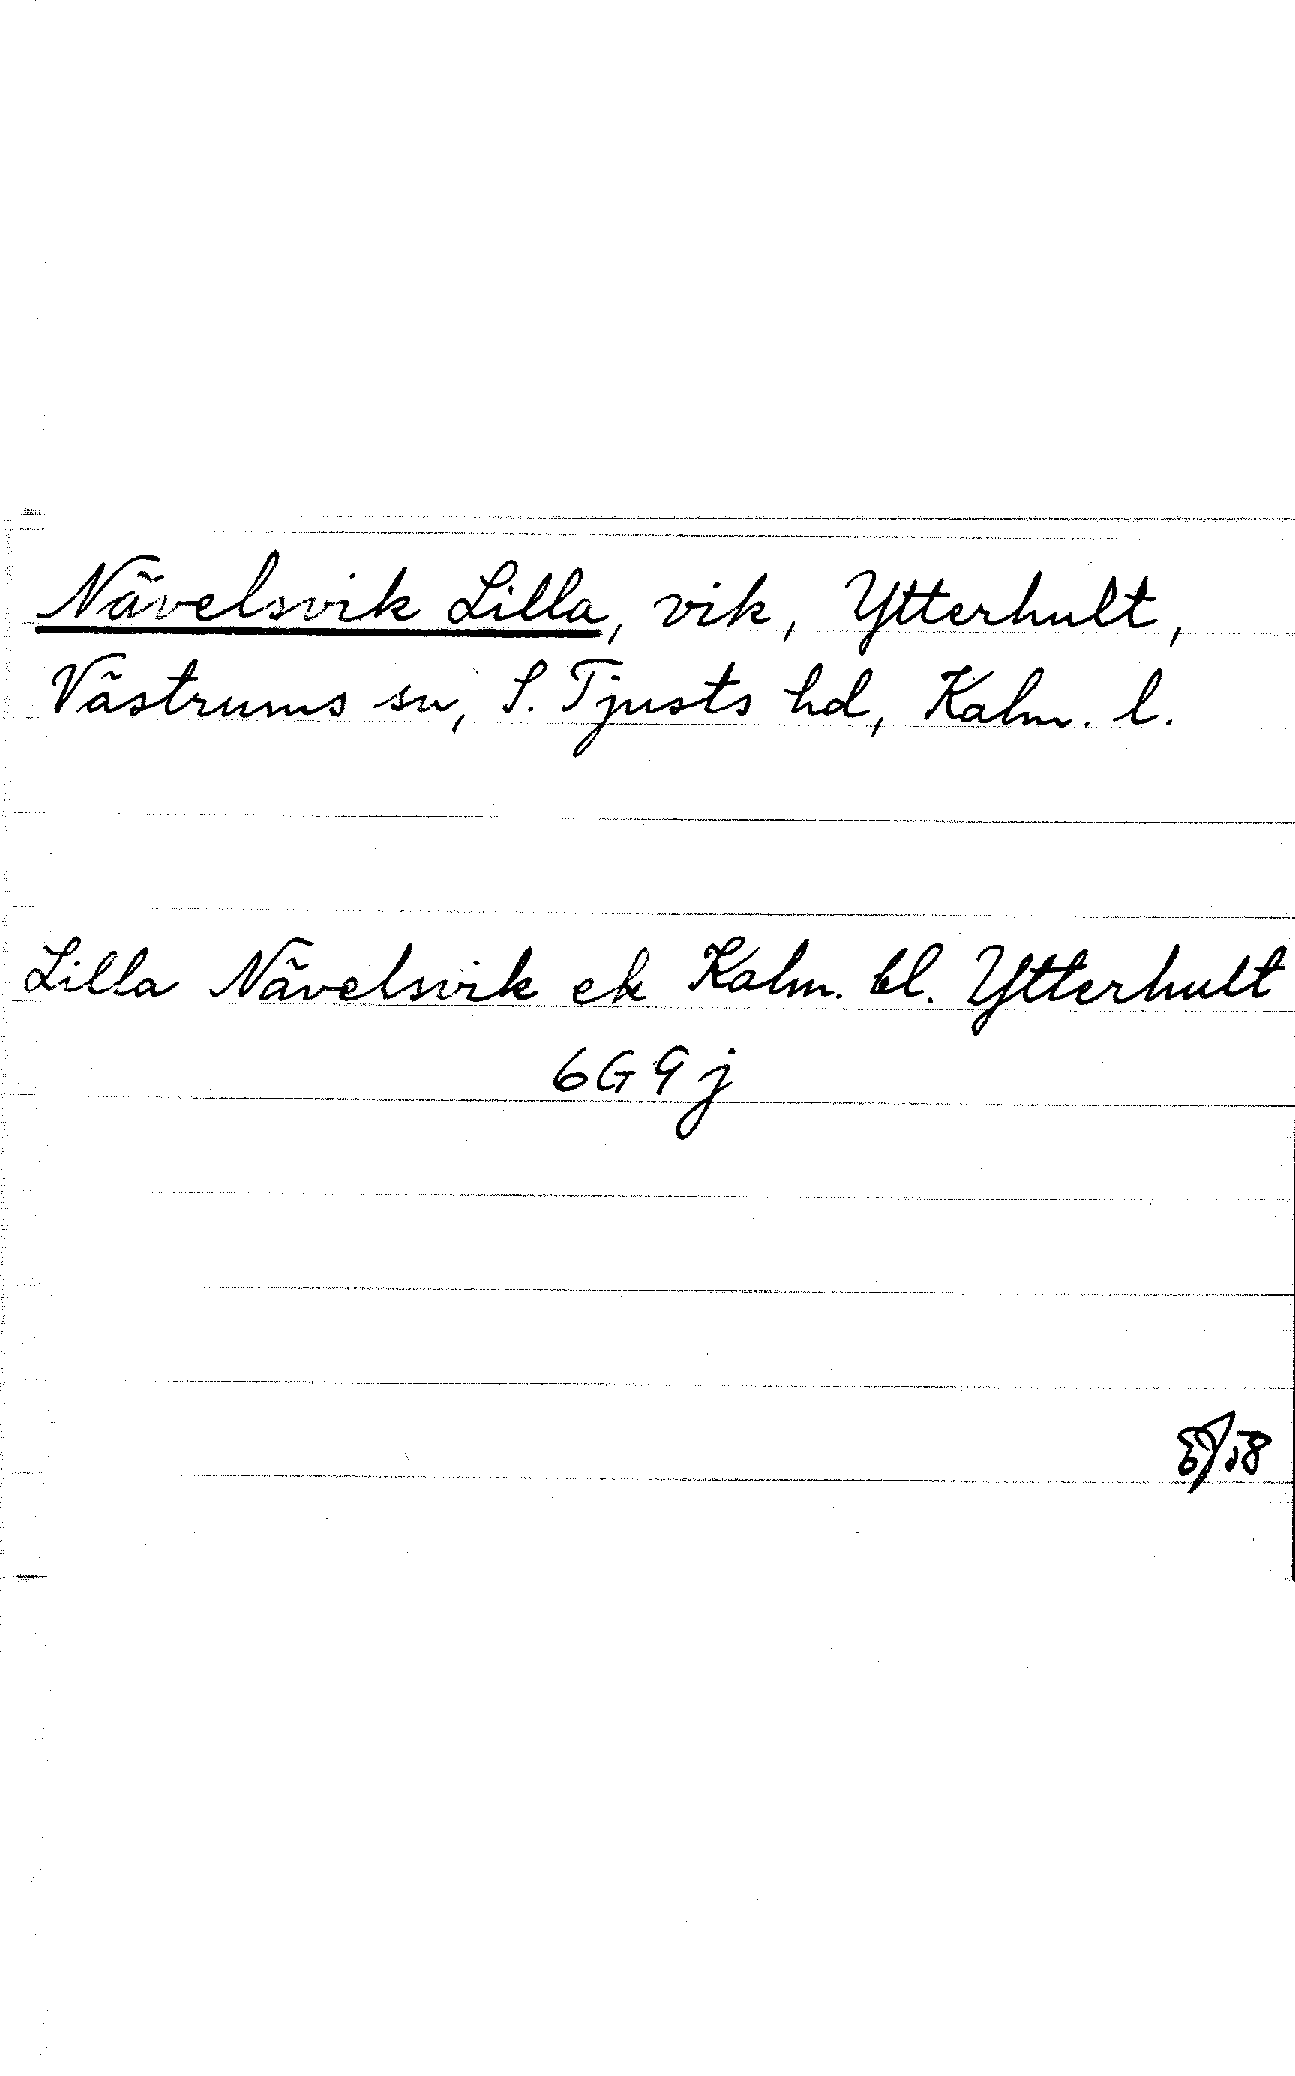 Nävelsvik Lilla, vik, Ytterhult,
Västrums sn, S. Tjusts hd, Kalm. l.
Lilla Nävelsvik ek Kalm. bl. Ytterhult
6G 9j